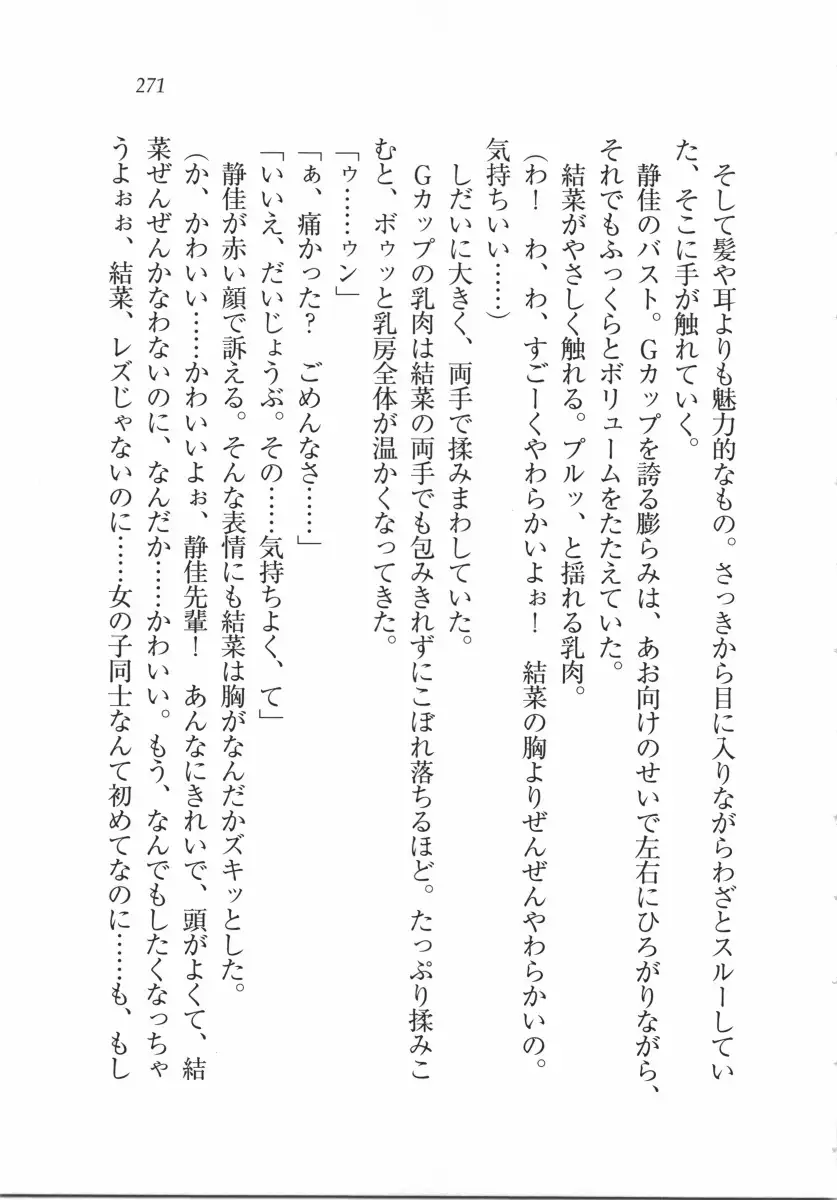 271
そして髪や耳よりも魅力的なもの。さっきから目に入りながらわざとスルーしてい
た、そこに手が触れていく。
静佳のバスト。Gカップを誇る膨らみは、あお向けのせいで左右にひろがりながら、
それでもふっくらとボリュームをたたえていた。
結菜がやさしく触れる。プルッ、と揺れる乳肉。
(わ! わ、わ、すごーくやわらかいよぉ! 結菜の胸よりぜんぜんやわらかいの。
気持ちいい……)
しだいに大きく、両手で揉みまわしていた。
Gカップの乳肉は結菜の両手でも包みきれずにこぼれ落ちるほど。たっぷり揉みこ
むと、ボゥッと乳房全体が温かくなってきた。
「ゥ……ゥン」
「ぁ、痛かった? ごめんなさ……」
「いいえ、だいじょうぶ。その……気持ちよく、て」
静佳が赤い顔で訴える。そんな表情にも結菜は胸がなんだかズキッとした。
(か、かわいい……かわいいよぉ、静佳先輩! あんなにきれいで、頭がよくて、結
菜ぜんぜんかなわないのに、なんだか……かわいい。もう、なんでもしたくなっちゃ
うよぉぉ、結菜、レズじゃないのに……女の子同士なんて初めてなのに……も、もし